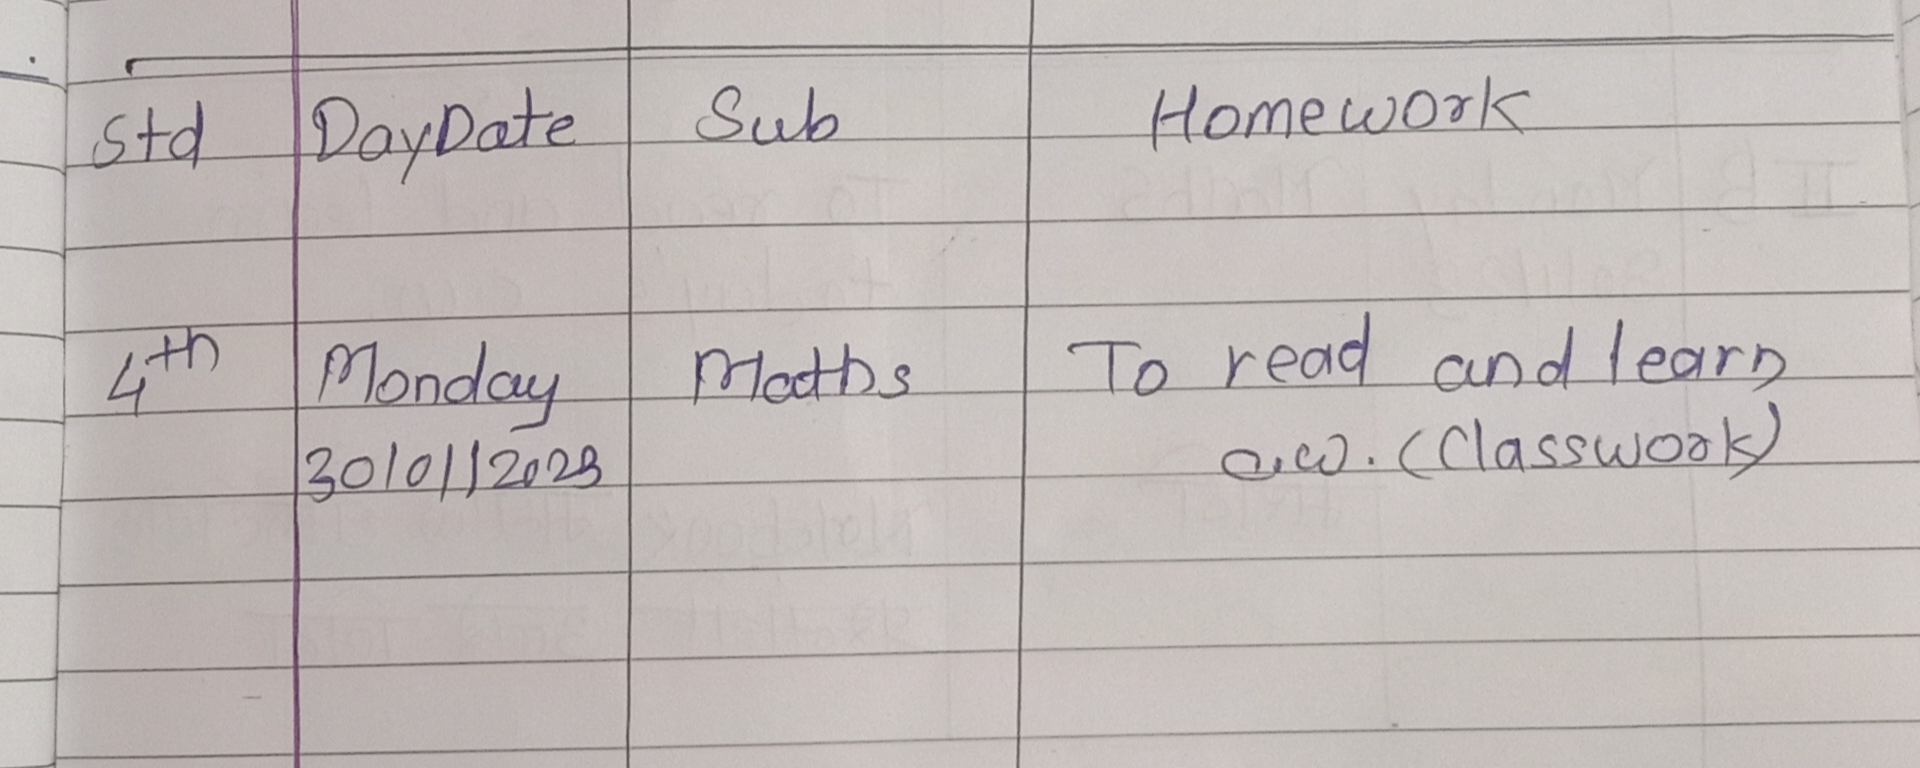 Std DayDate Sub Homework
4th Monday Maths To read and learn
30/01/2023 c.w. (Classwork)